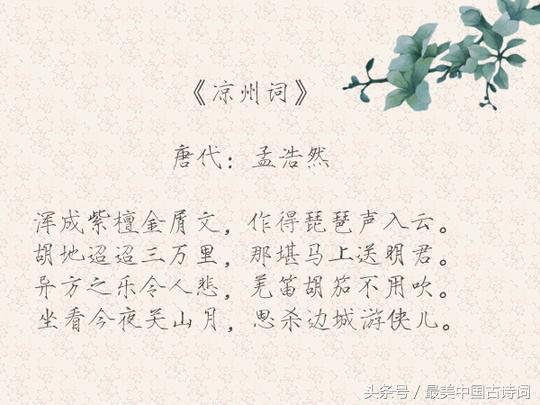 《凉州词》
唐代：孟浩然
浑成紫檀金屑文，作得琵琶声入云。
胡地迢迢三万里，那堪马上送明君。
异方之乐令人悲，羌笛胡笳不用吹。
坐看今夜关山月，思杀边城游侠儿。
头条号/最美中国古诗词